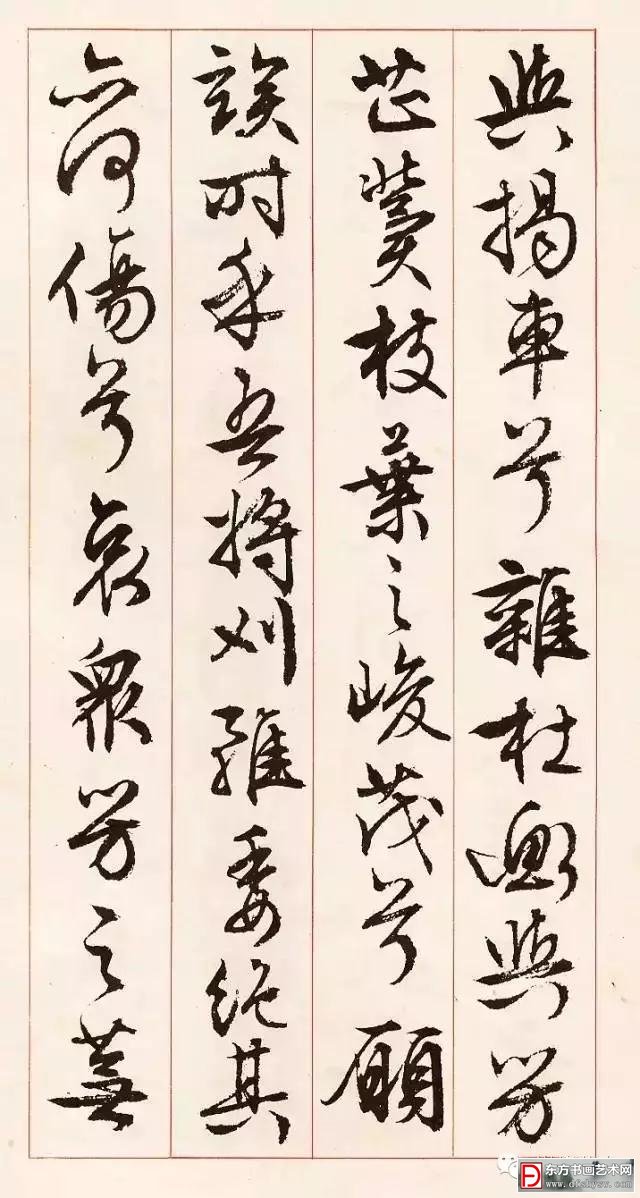 與揭車兮雜杜衡與芳
芷冀枝葉之峻茂兮願
竢时乎吾將刈雖委絕其
亦何傷兮哀衆芳之蕪
东方书画艺术网